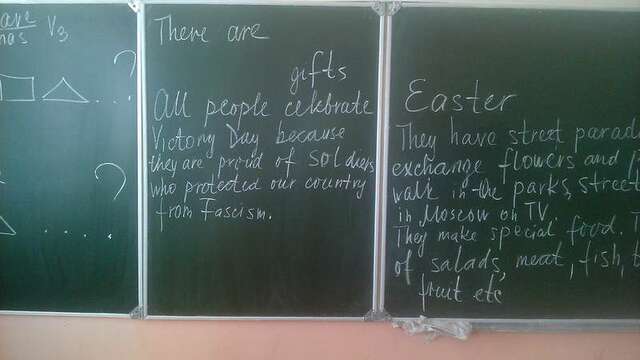 V3
?
...
?
....
There are
gifts
All people celebrate
Victory Day because
they are proud of soldiers
who protected our country
from Fascism.
Easter
They have street parad
exchange flowers and
walk in the parks, street
in Moscow on TV.
They make special food.
of salads, meat, fish,
fruit etc